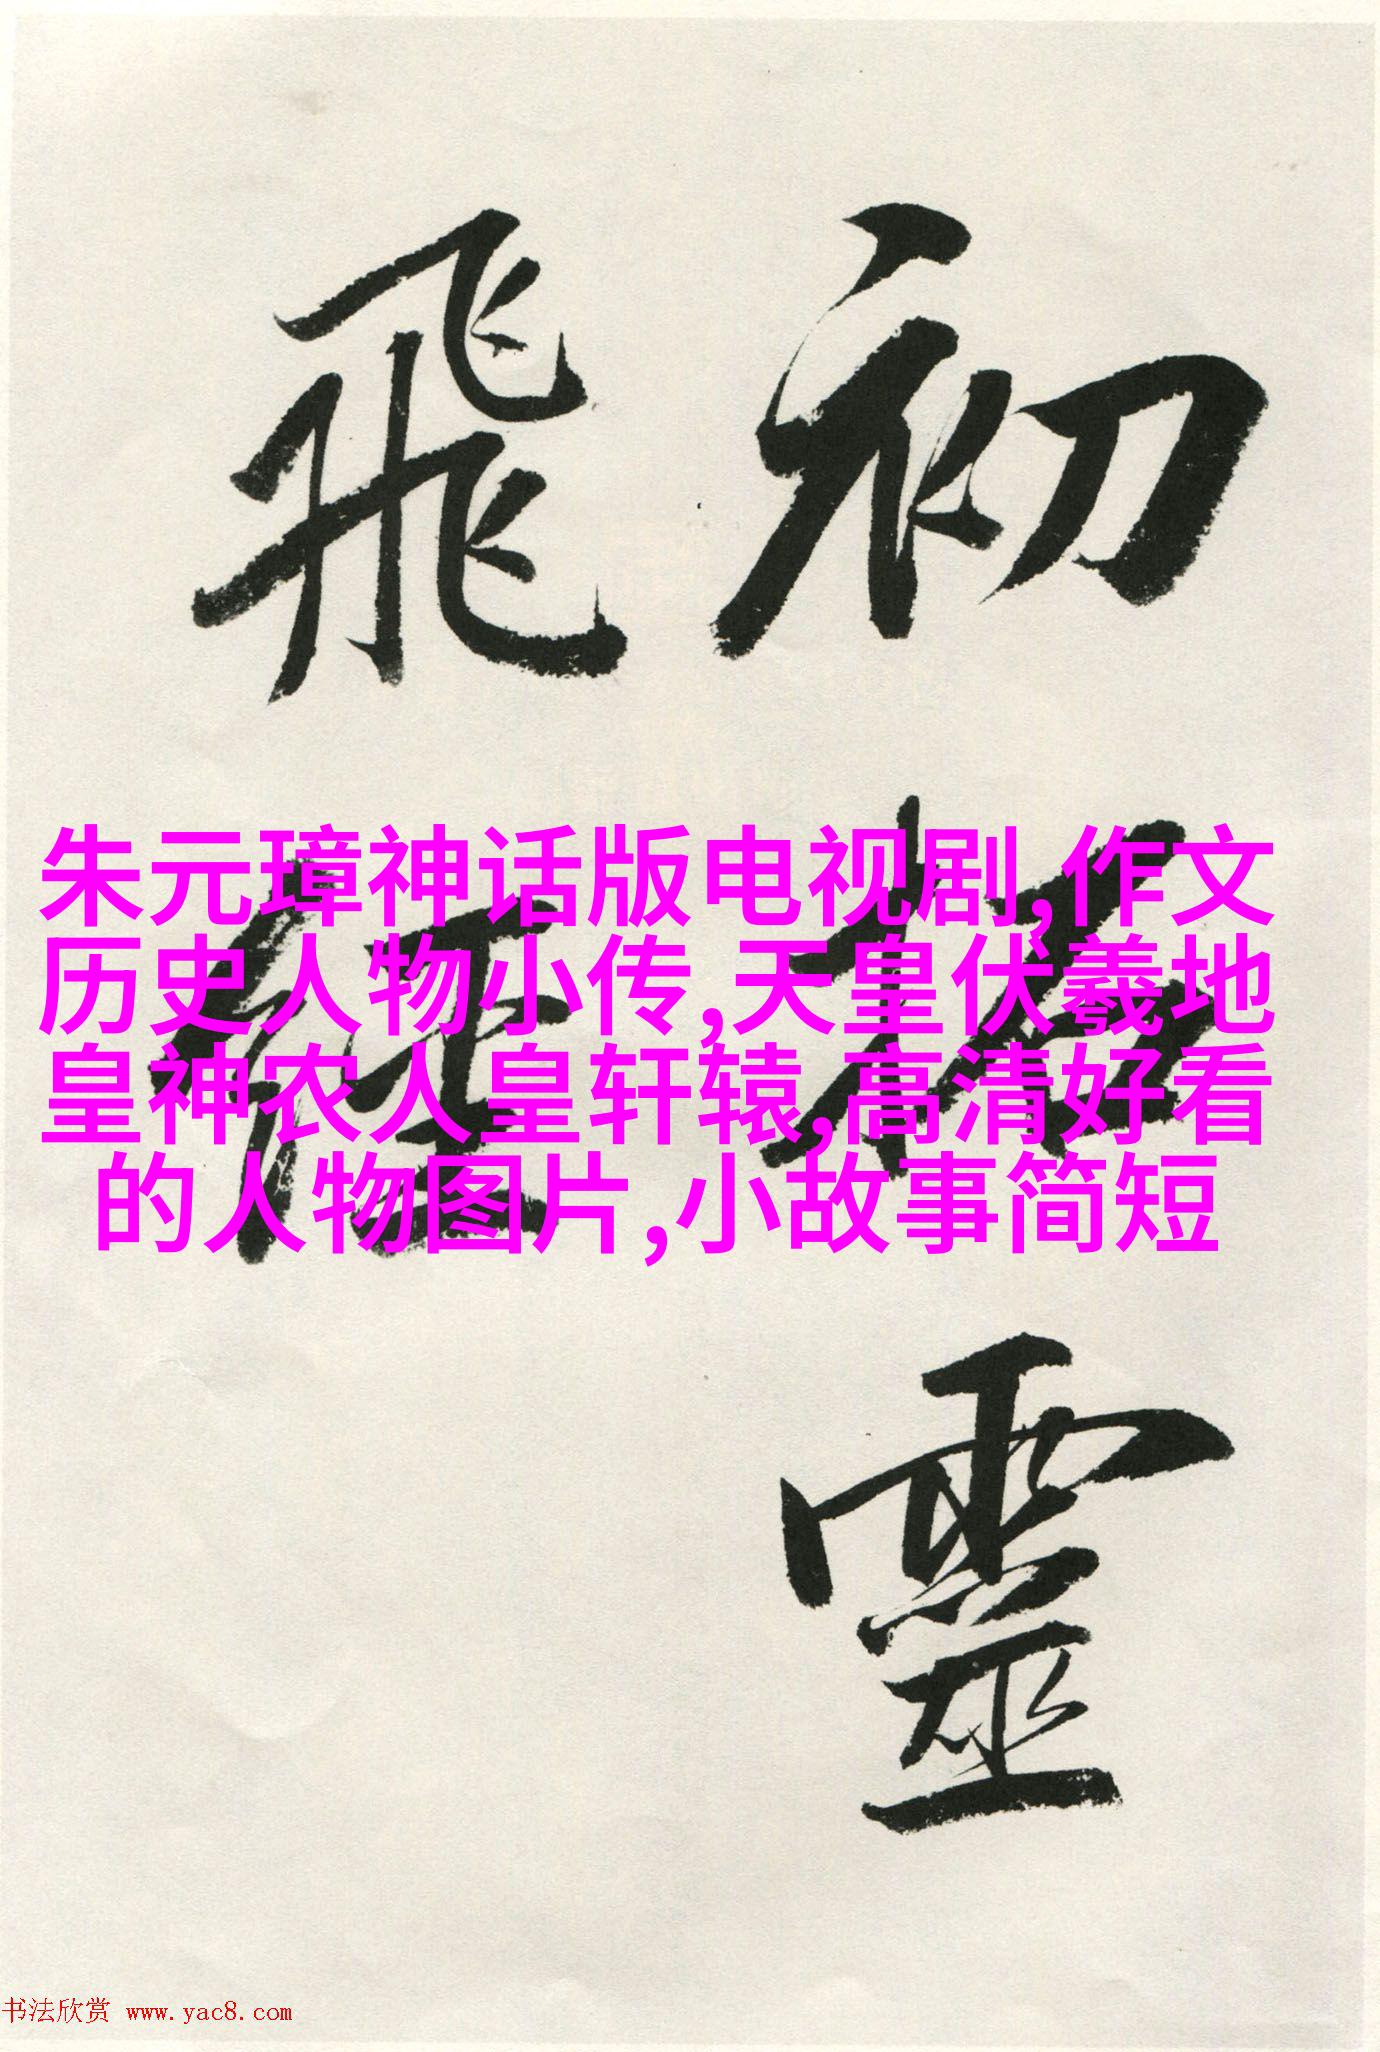 初拓靈
飛經
朱元璋神话版电视剧,作文
历史人物小传,天皇伏羲地
皇神农人皇轩辕,高清好看
的人物图片,小故事简短
书法欣赏 www.yac8.com